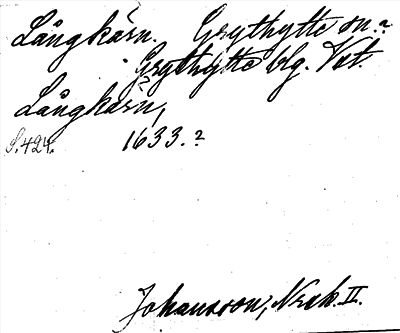 Långkärn. Grythytte sn.?
Grythytte blg. Vst.
Långkärn,
S. 424. 1633.?
Johansson, Nrsk. II.